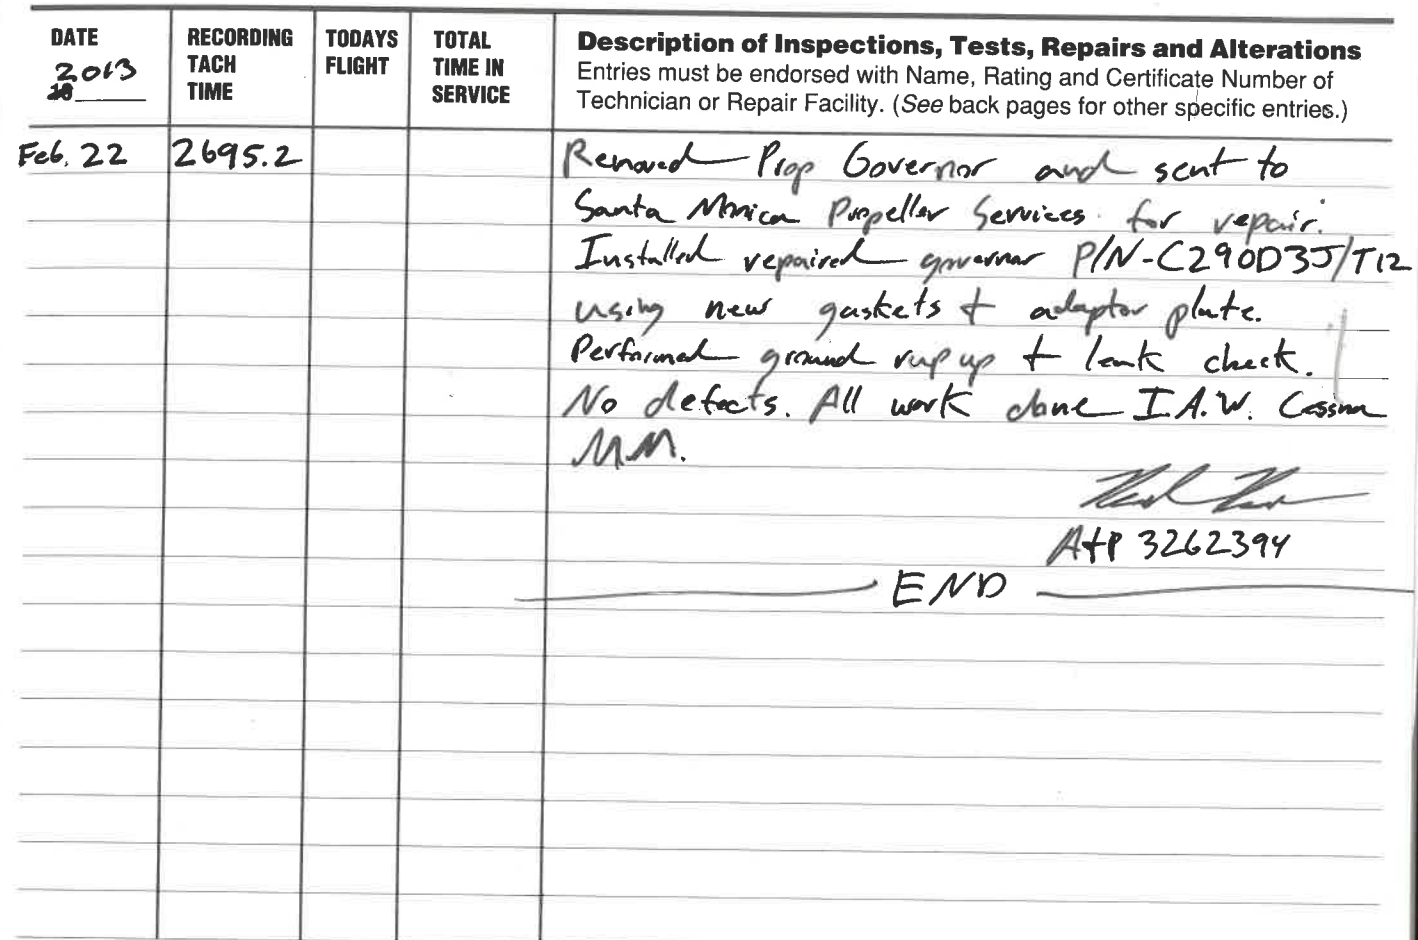 DATE RECORDING TODAYS TOTAL Description of Inspections, Tests, Repairs and Alterations
2013 TACH FLIGHT TIME IN Entries must be endorsed with Name, Rating and Certificate Number of
TIME SERVICE Technician or Repair Facility. (See back pages for other specific entries.)
Feb. 22 2695.2 Removed Prop Governor and sent to
Santa Monica Propeller Services for repair.
Installed repaired governor P/N-C290D3J/T12
using new gaskets + adaptor plate.
Performed ground rup up + leak check.
No defects. All work done I.A.W. Cessna
M.M.
A+P 3262394
END